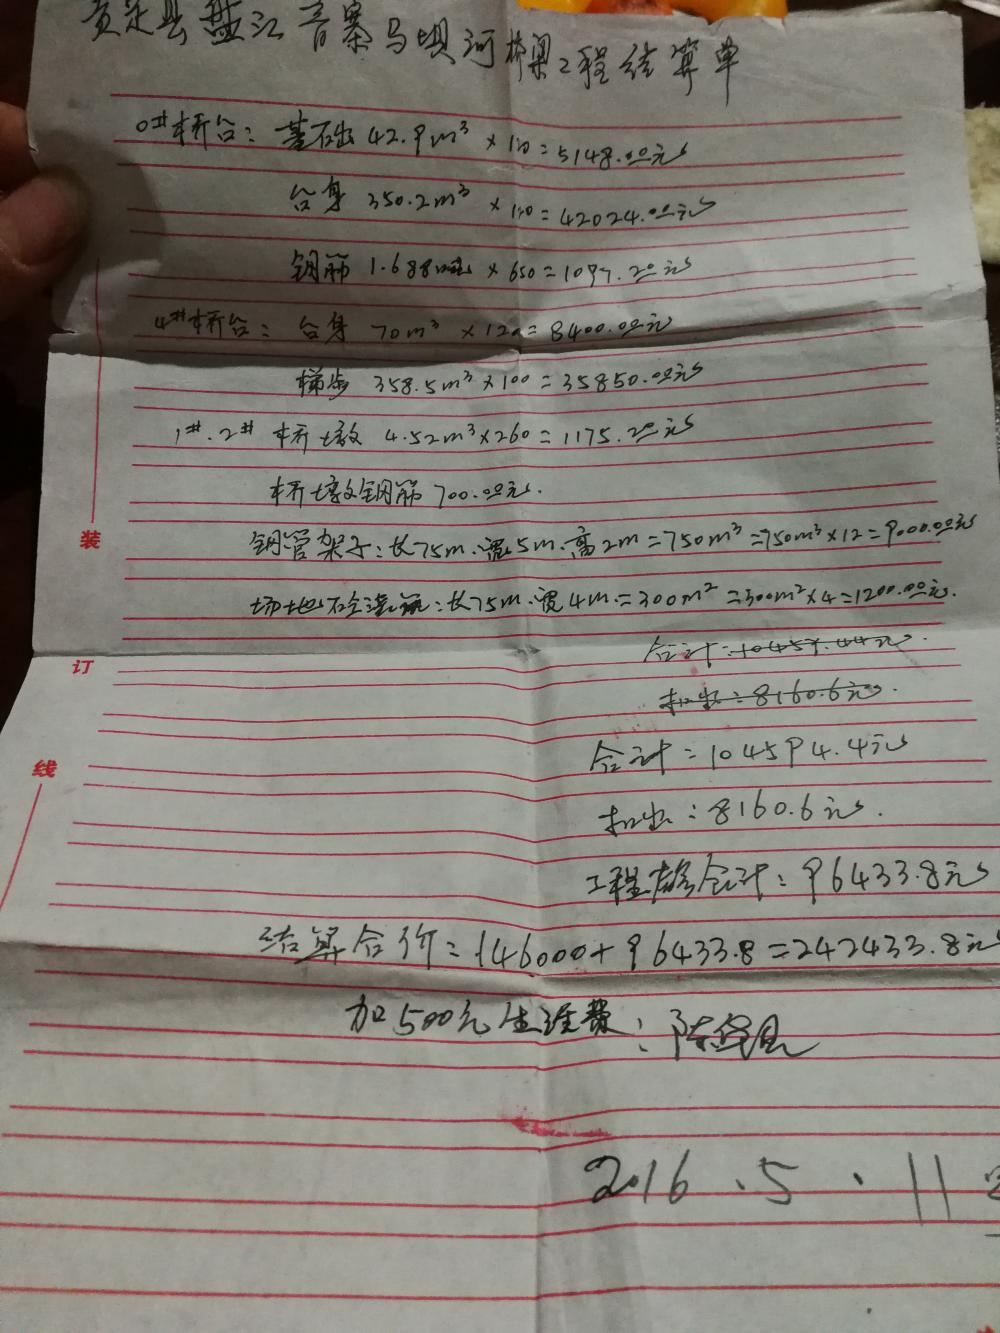 贵定县盘江音寨马坝河桥梁工程结算单
0#桥台：基础 42.9m³×120=5148.00元
台身 350.2m³×120=42024.00元
钢筋 1.688吨×650=1097.20元
4#桥台：台身 70m³×120=8400.00元
梯步 358.5m³×100=35850.00元
1#.2#桥墩 4.52m³×260=1175.20元
桥墩钢筋 700.00元.
钢管架子：长75m.宽5m.高2m=750m³=750m³×12=9000.00元
装
场地砼浇筑：长75m.宽4m=300m²=300m²×4=1200.00元.
订
扣出：8160.6元.
合计：104594.4元
线
扣出：8160.6元.
工程合计：96433.8元
结算合价：146000+96433.8=242433.8元
加500元生活费：
2016.5.11